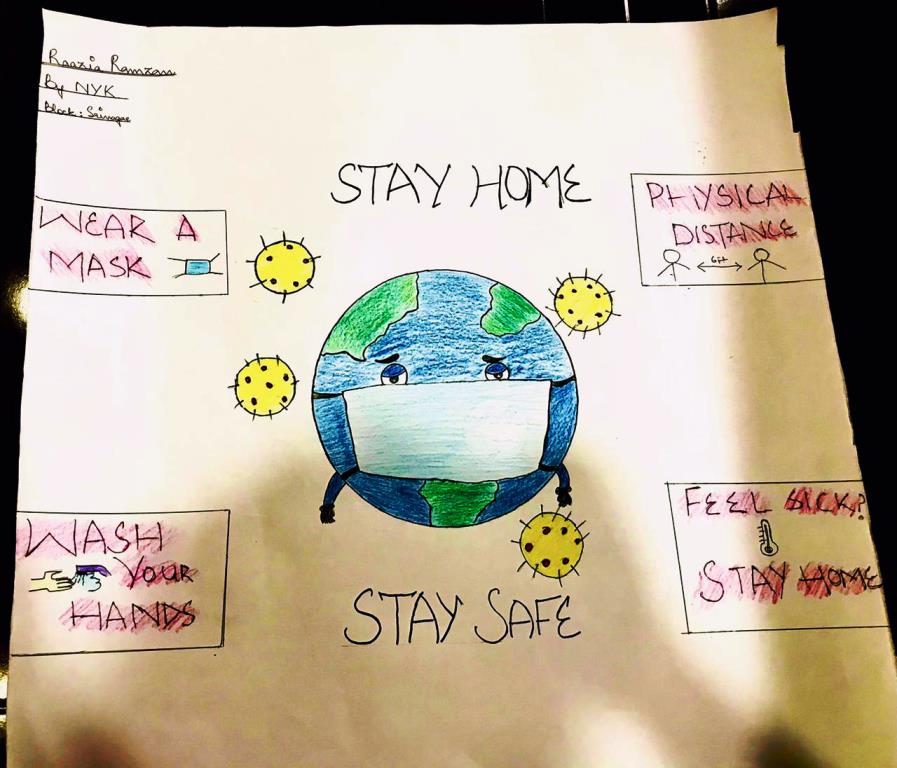 Raazia Ramzan
By NYK
Block: Srinagar
STAY HOME
WEAR A
MASK
PHYSICAL
DISTANCE
6ft
WASH
YOUR
HANDS
FEEL SICK?
STAY HOME
STAY SAFE